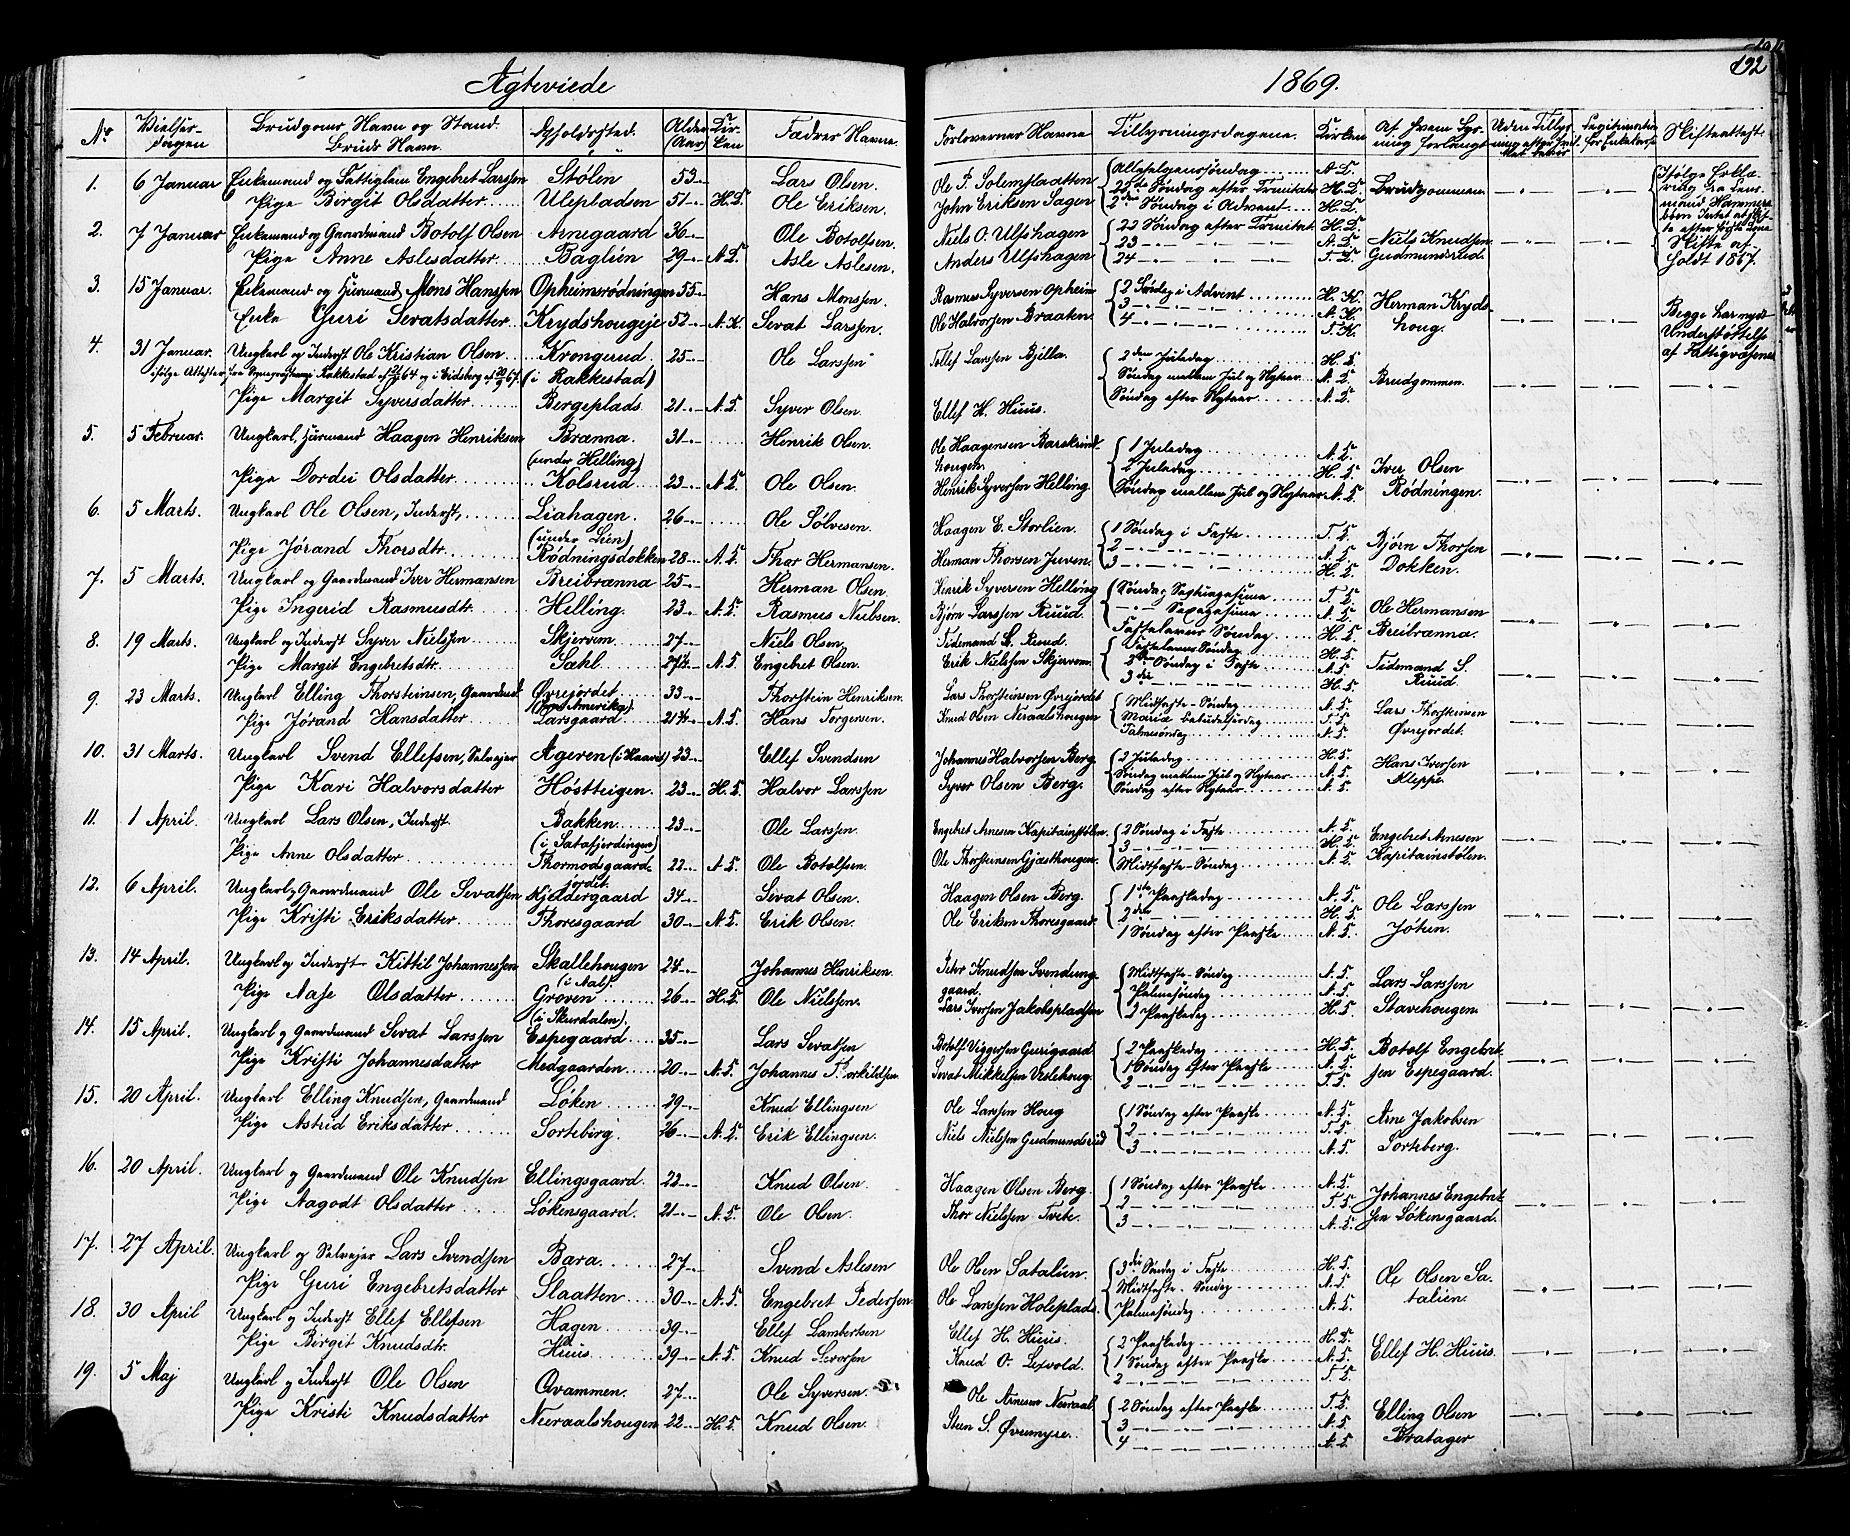 Ægteviede
1869.
192
No
Vielses-dagen
Brudgoms Navn og Stand. Bruds Navn.
Opholdssted.
Alder (Aar)
Kirken
Fædres Navne.
Forlovernes Navne
Tillysningsdagene.
Kirken
Af hvem Lysning forlangt
Uden Tillysning
Legitimation for Enkekone
Skifteattest
1. 6 Januar Enkemand og Fattiglem Engebret Larssen Stølen 53 Lars Olsen. Ole P. Solemslaatten Allehelgenssøndag A. K.
Pige Birgit Olsdatter Ulspladsen 51 H.K. Ole Eriksen. John Eriksen Hagen 25de Søndag efter Trinitat. H. K. Brudgommen
2den Søndag i Advent H. K.
2. 7 Januar Enkemand og Gaardmand Botolf Olsen Arnegaard 36 Ole Botolfsen. Niels O. Ulfshagen 22 Søndag efter Trinitat. H. K. Niels Knudsen
Pige Anne Aslesdatter Baglien 29 A.K. Asle Aslesen. Anders Ulfshagen 23 A. K. Gudmundsrud.
24 T. K.
Skifte afholdt 1867.
3. 15 Januar. Enkemand og Husmand Mons Hanssen Opheimsrødningen 55 Hans Monssen. Rasmus Syversen Opheim 2 Søndag i Advent H. K. Herman Kryds-
Enke Guri Sevatsdatter Krydshougeje 52 A.K. Sevat Larssen. Ole Halvorsen Braaten 3 A. K. houg.
4 T. K.
Begge har nydt Understøttelse af Fattigvæsenet
4. 31 Januar. Ungkarl og Inderst Ole Kristian Olsen Krongerud 25 Ole Larssen Tollef Larssen Bjella 2den Juledag H. K.
(i Rakkestad) Søndag mellem Jul og Nytaar A. K. Brudgommen.
Pige Margit Syversdatter Bergeplads 21 A.K. Syver Olsen. Ellef H. Huus. Søndag efter Nytaar A. K.
5. 5 Februar. Ungkarl, Husmand Haagen Henriksen Brænna 31 Henrik Olsen. Ole Haagensen Barskrind- 1 Juledag A. K.
(under Helling) hougen. 2 Juledag H. K. Iver Olsen
Pige Dordei Olsdatter Kolsrud 23 A.K. Ole Olsen. Henrik Syversen Helling Søndag mellem Jul og Nytaar A. K. Rødningen.
6. 5 Marts. Ungkarl Ole Olsen, Inderst, Liahagen. 26 Ole Sølvesen. Haagen E. Storlien. 1 Søndag i Faste T. K.
(under Lien) 2 A. K. Bjørn Thorsen
Pige Jørand Thorsdtr. Rødningsdokken 28 A.K. Thor Hermansen. Herman Thorsen Juven. 3 H. K. Dokken.
7. 5 Marts. Ungkarl og Gaardmand Iver Hermansen Breibrænna 25 Herman Olsen. Henrik Syversen Helling Søndag Septuagesima T. K.
Pige Ingerid Rasmusdtr. Helling. 23 A.K. Rasmus Nielsen. Bjørn Larssen Ruud. Sexagesima A. K. Ole Hermansen
Fastelavns Søndag H. K. Breibrænna.
8. 19 Marts. Ungkarl og Inderst Syver Nielssen Skjervem 27 Niels Olsen. Tidemand S. Ruud. Fastelavns Søndag H. K.
Pige Margit Engebretsdtr. Sæhl. 27½ A.K. Engebret Olsen. Erik Nielssen Skjervem. 2den Søndag i Faste A.K. Tidemand S.
3die H.K. Ruud
9. 23 Marts. Ungkarl Elling Thorsteinsen, Gaardmand Øvrejordet 33 Thorstein Henriksen. Lars Thorsteinsen Øvrejordet Midtfaste-Søndag A. K. Lars Thorsteinsen
Pige Jørand Hansdatter Larsgaard 21 A.K. Hans Torgersen. Knud Olsen Neraalshougen Mariæ Bebudelsesdag T.K. Øvrejordet.
Palmesøndag A.K.
10. 31 Marts. Ungkarl Svend Ellefsen, Selvejer Ageren 23 Ellef Svendsen Johannes Halvorsen Berg 2 Juledag H. K. Hans Iversen
Pige Kari Halvorsdatter Høstteigen. 23 H.K. Halvor Larssen Syver Olsen Berg. Søndag mellem Jul og Nytaar A.K. Kleppe.
Søndag efter Nytaar A.K.
11. 1 April. Ungkarl Lars Olsen, Inderst Bakken 23 Ole Larssen. Engebret Arnesen Kapitainstølen 2 Søndag i Faste A. K. Engebret Arnesen
3 H.K. Kapitainstølen.
Pige Anne Olsdatter Thormodsgaard-jordet. 22 A.K. Ole Botolfsen Ole Thorsteinsen Gjæsthougen. Midtfaste-Søndag A.K.
12. 6 April. Ungkarl og Gaardmand Ole Sevatsen Kjeldergaard 34 Sevat Olsen. Haagen Olsen Berg. 1ste Paaskedag A. K. Ole Larssen
Pige Kristi Eriksdatter Thoresgaard 30 A.K. Erik Olsen. Ole Eriksen Thoresgaard 2den H.K. Jøtun.
1 Søndag efter Paaske A.K.
13. 14 April. Ungkarl og Inderst Kittil Johannessen Skallehougen 24 Johannes Henriksen. Peter Knudsen Svendung- Midtfaste-Søndag A. K. Lars Larssen
(i Aal). gaard. Palmesøndag A.K. Stavehougen.
Pige Aase Olsdatter Grøven 26 H.K. Ole Nielssen. Lars Iversen Jakobspladsen 2 Paaskedag H.K.
(i Skurdalen).
14. 15 April. Ungkarl og Gaardmand Sevat Larssen Espegaard 35 Lars Sevatsen Botolf Viggersen Gurigaard 2 Paaskedag H. K. Botolf Engebret-
Pige Kristi Johannesdatter Medgaarden 20 A.K. Johannes Torkildsen. Sevat Mikkelsen Veslehoug. 1 Søndag efter Paaske A.K. sen Espegaard.
2 T.K.
15. 20 April. Ungkarl Elling Knudsen, Gaardmand Løken 29 Knud Ellingsen Ole Larssen Houg 1 Søndag efter Paaske A. K. Arne Jakobsen
Pige Astrid Eriksdatter Sorteberg. 26 A.K. Erik Ellingsen. Niels Nielssen Gudmundsrud 2 T.K. Sorteberg.
3 A.K.
16. 20 April. Ungkarl og Gaardmand Ole Knudsen Ellingsgaard. 22 Knud Olsen. Haagen Olsen Berg. 1 Søndag efter Paaske A. K. Johannes Engebret-
Pige Aagodt Olsdatter Løkensgaard. 21 A.K. Ole Olsen. Thor Nielssen Tvete. 2 T.K. sen Løkensgaard.
3 A.K.
17. 27 April. Ungkarl og Selvejer Lars Svendsen Bara. 27 Svend Aslesen Ole Olsen Satalien. 3die Søndag i Faste H. K. Ole Olsen Sa-
Pige Guri Engebretsdatter Slaatten 30 A.K. Engebret Pedersen Ole Larssen Holeplads. Midtfaste-Søndag A.K. talien.
Palmesøndag A.K.
18. 30 April Ungkarl og Inderst Ellef Ellefsen Hagen 39 Ellef Lambertsen Ellef H. Huus. 2 Paaskedag H. K. Ellef H. Huus.
Pige Birgit Knudsdtr. Huus 39 A.K. Knud Sevorsen Knud O. Lexvold. 1 Søndag efter Paaske A.K.
2 T.K.
19. 5 Maj Ungkarl og Inderst Ole Olsen Qvammen. 27 Ole Syversen Ole Arnesen Neraal 2 Søndag efter Paaske T. K. Elling Olsen
Pige Kristi Knudsdatter Neeraalshougen 22 H.K. Knud Olsen. Sten S. Øvremyre. 3 A.K. Bratager
4 A.K.